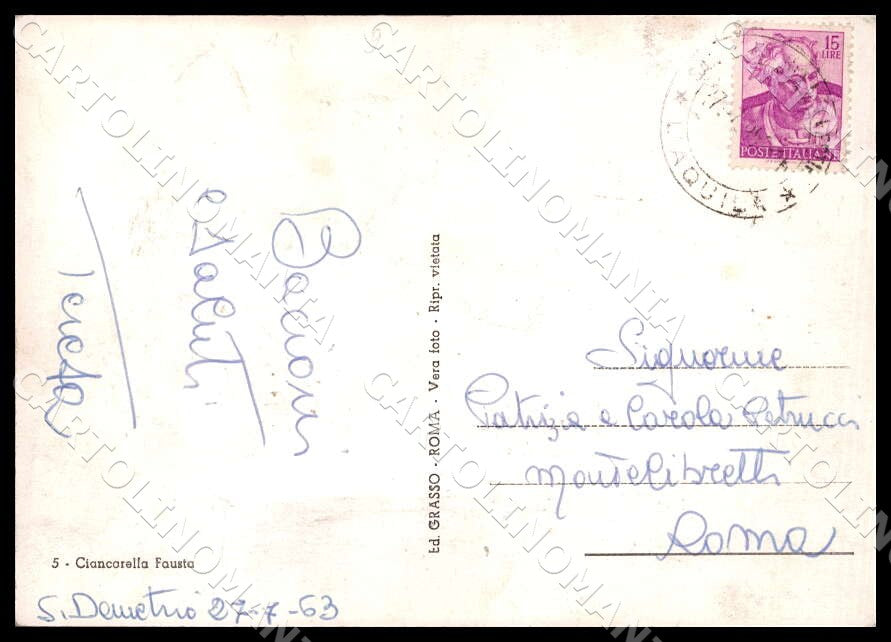 15
LIRE
POSTE ITALIANE
L'AQUILA
Bacioni
Saluti
Teresa
Ed. GRASSO - ROMA - Vera foto - Ripr. vietata
Signorine
Patrizia e Carola Petrucci
Montelibretti
Roma
5 - Ciancarella Fausta
S. Demetrio 27-7-63
CARTOLINOMANIA